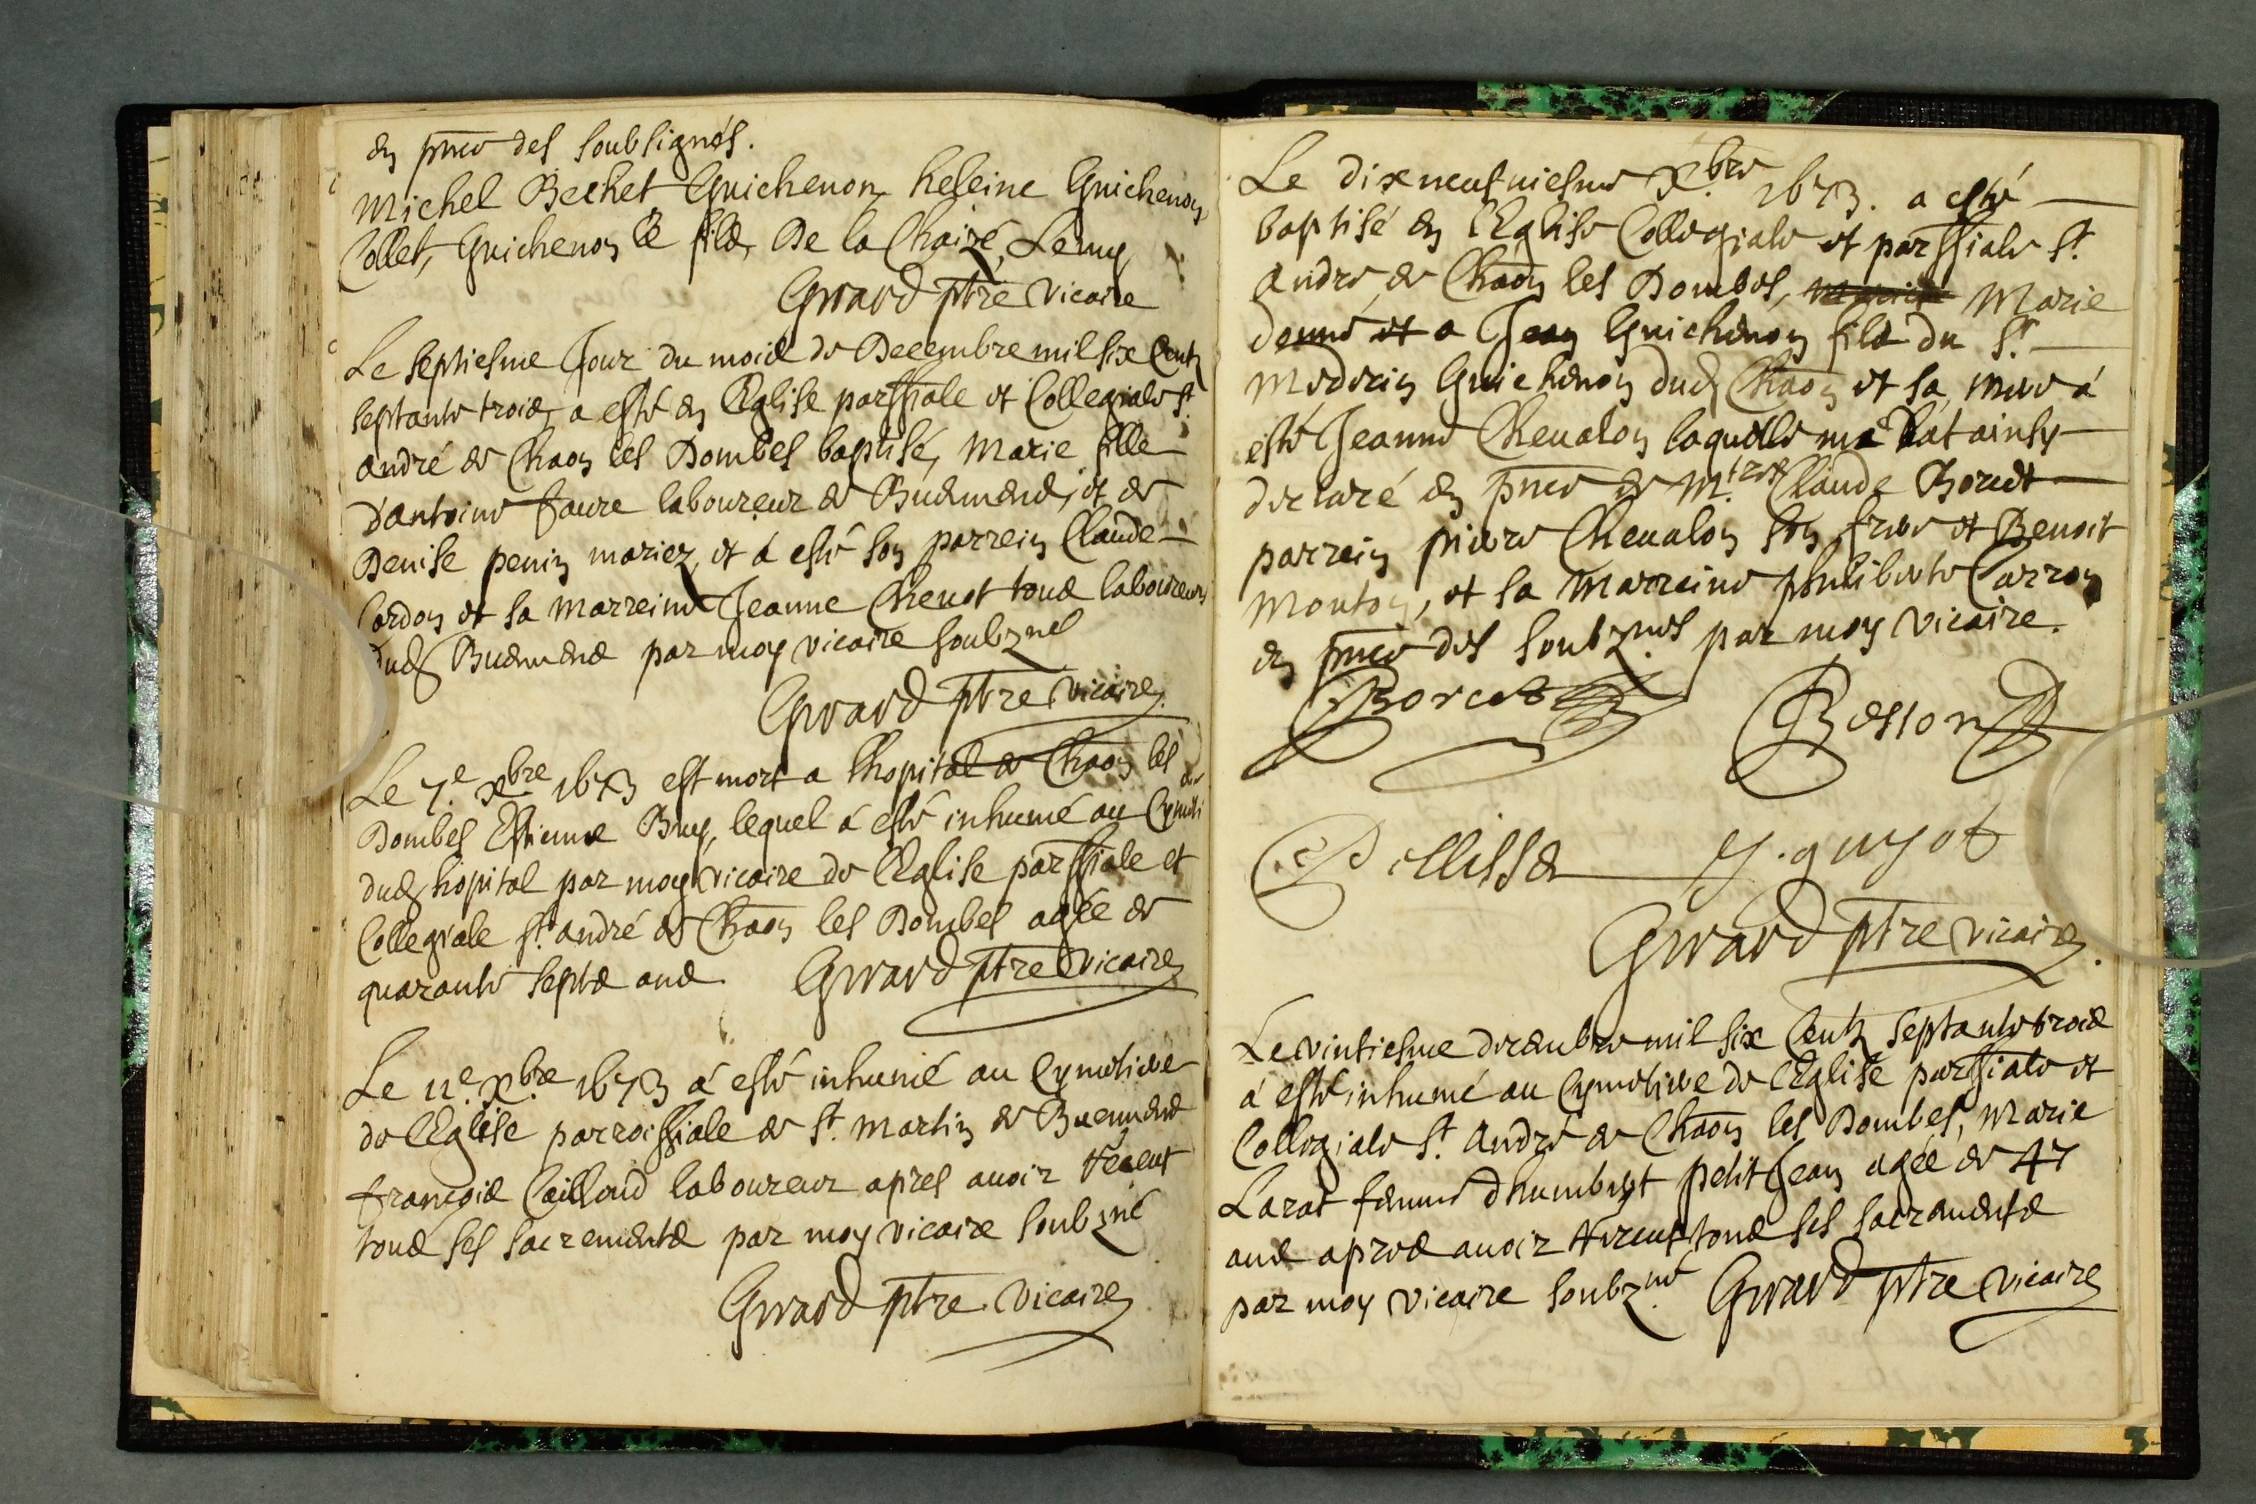 en pnce des soubsignés.
Michel Bechet Guichenon heleine Guichenon
Collet, Guichenon le fils, De la Chaize, Lemy
Girard ptre vicaire
Le septiesme Jour du mois de Decembre mil six Centz
septante trois, a esté en l'Eglise parssiale et Collegiale st.
andré de Chaōn les Dombes baptisé, Marie fille
d'Antoine faure laboureur de Buenens, et de
Denise penin mariez, et á esté son parrein Claude
Cordon et sa marreine Jeanne Chenot tous laboureurs
dud Buenens par moy vicaire soubzne
Girard ptre vicaire
Le 7e. xbre 1673 est mort a lhopital de Chaōn les
Dombes Estienne Bruy, lequel á esté inhumé au Cymeti
dud hopital par moy vicaire de l'Eglise parssiale et
Collegiale st. andré de Chaōn les Dombes agée de
quarante septs ans Girard ptre vicaire
Le 11e. xbre 1673 á esté inhumé au Cymetiere
de l'Eglise parroissiale de St. Martin de Buenens
françois Cailloud laboureur apres auoir receut
tous ses sacrements par moy vicaire soubzné
Girard ptre vicaire
Le dixneufuiesme xbre 1673. a esté
baptisé en l'Eglise Collegiale et parssiale St.
Andre de Chaōn les Dombes, Marie
donné et a Jean Guichenon fils du Sr.
Medecin Guichenon dud Chaōn et sa mere á
esté Jeanne Cheualon laquelle ma lat ainsy
declaré en pnce de Mtre Claude Boret
parrein pierre Cheualon son frere et Benoit
Monton, et sa Marreine philiberte Carron
en pnce des soubznes par moy vicaire.
Boret Besson
Pellissa J. guyot
Girard ptre vicaire
Le vintiesme decembre mil six Centz septante trois
á esté inhumé au Cymetiere de l'Eglise parssiale et
Collegiale St. André de Chaōn les Dombes, Marie
Larat femme d'humbert petit Jean agée de 47
ans apres auoir receut tous ses sacrements
par moy vicaire soubzné Girard ptre vicaire